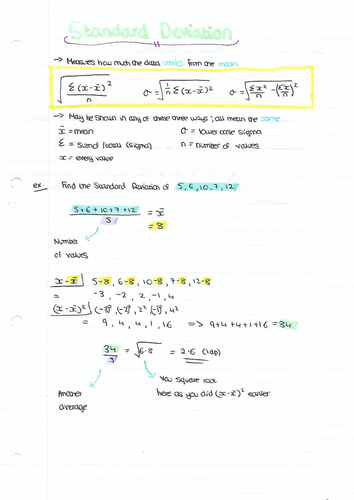 Standard Deviation
→ Measures how much the data varies from the mean
√(Σ(x-x̄)²/n) σ=√(1/n Σ(x-x̄)²) σ=√(Σx²/n-(Σx/n)²)
→ May be shown in any of these three ways; all mean the same.
x̄ = mean σ = lower case sigma
Σ = Sum of (total) (sigma) n = number of values
x = every value
ex. Find the Standard Deviation of 5,6,10,7,12
5+6+10+7+12 = x̄
5 = 8
Number
of values
x-x̄ | 5-8, 6-8, 10-8, 7-8, 12-8
= -3, -2, 2, -1, 4
(x-x̄)² | (-3)², (-2)², 2², (-1)², 4²
= 9, 4, 4, 1, 16 => 9+4+4+1+16 = 34
34/5 = √6.8 = 2.6 (1dp)
Another
average
You square root
here as you did (x-x̄)² earlier